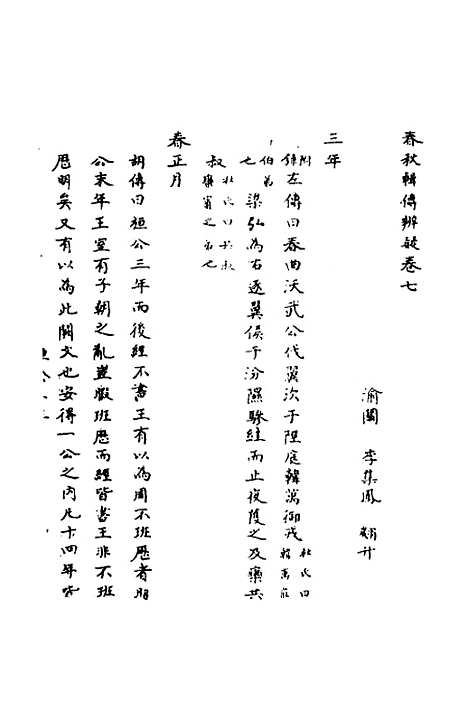 春秋輯傳辨疑卷七
渝關 李集鳳 翽升
三年
附錄左傳曰春曲沃武公伐翼次于陘庭韓萬御戎杜氏曰韓萬莊
伯弟也梁弘為右逐翼侯于汾隰驂絓而止夜獲之及欒共
叔杜氏曰共叔欒賓之子也
春正月
胡傳曰桓公三年而後經不書王有以為周不班厯者昭
公末年王室有子朝之亂豈暇班厯而經皆書王非不班
厯明矣又有以為此闕文也安得一公之内凡十四年皆